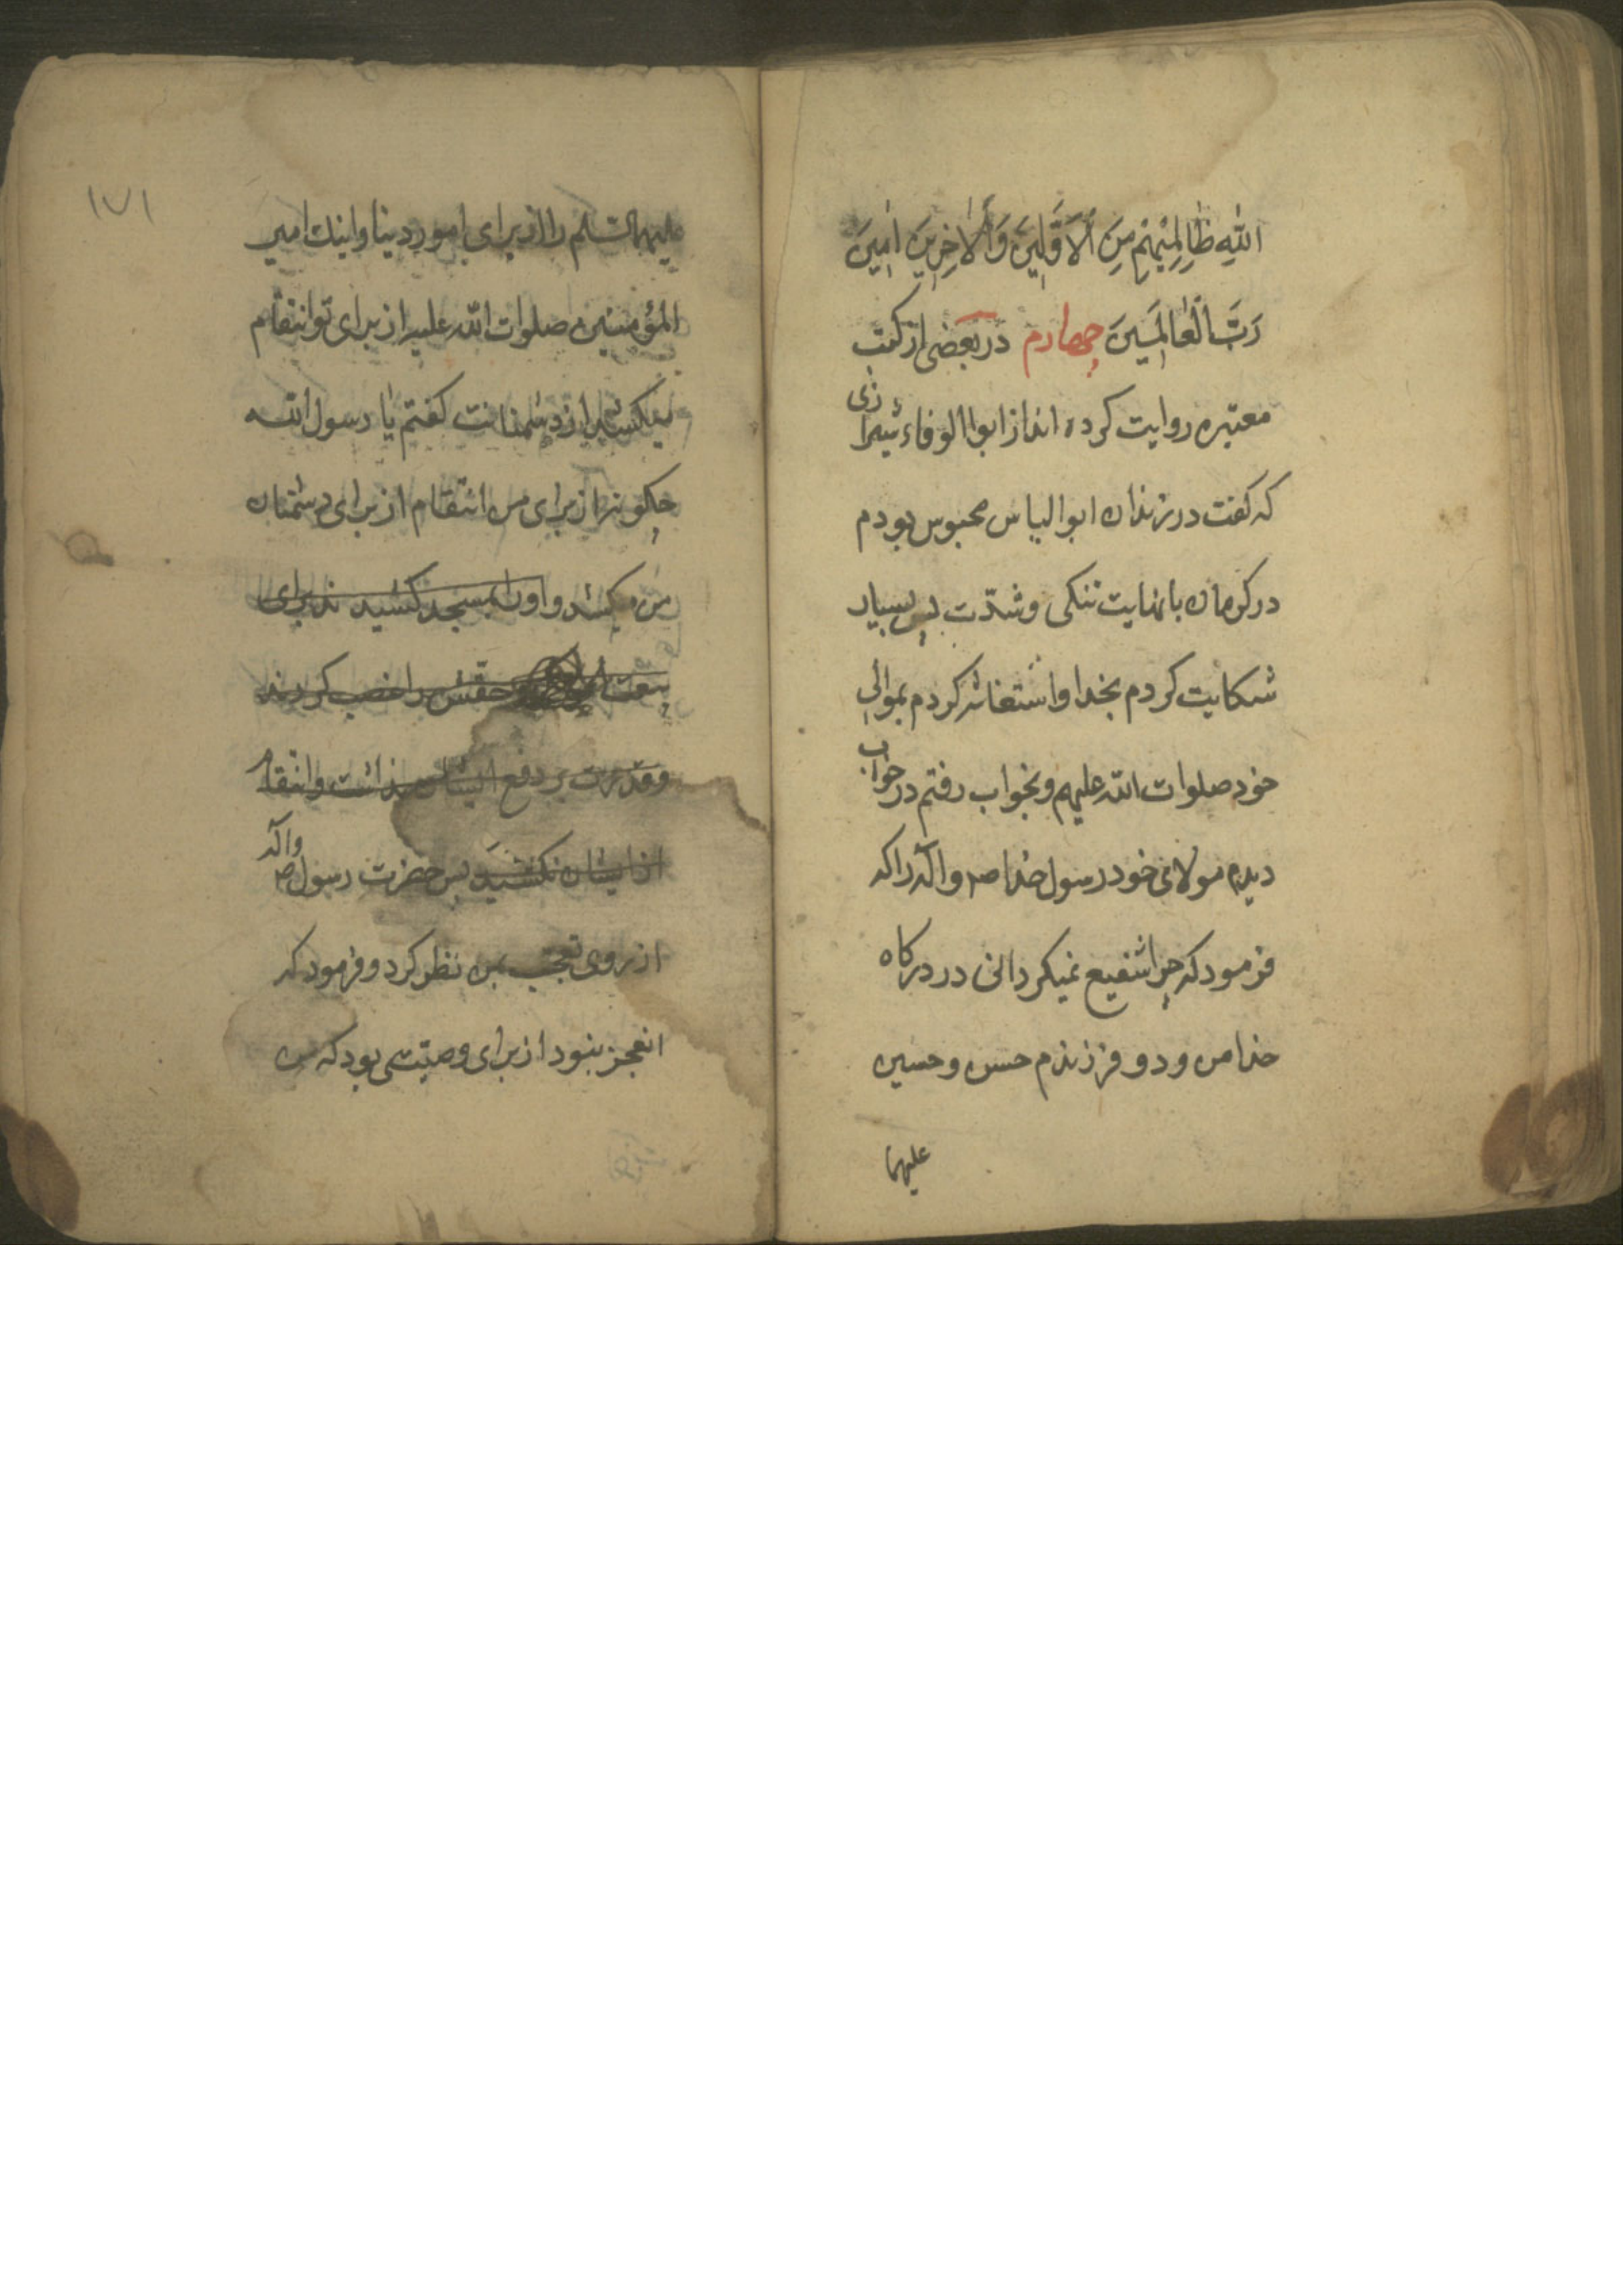 اللّٰهِ ظٰالِمِيْهِمْ مِنَ الْاَوَّلِيْنَ وَالْاٰخِرِيْنَ اٰمِيْنَ
رَبَّ الْعٰالَمَيِنَ چهارم در بعضی از کتب
معتبره روایت کرده اند از ابوالوفاء شیرازی
که کفت در زندان ابوالیاس محبوس بودم
در کرمان با نهایت تنکی و شدّت پس بسیار
شکایت کردم بخدا و استغاثه کردم بموالی
خود صلوات الله علیهم و بخواب رفتم در خواب
دیدم مولای خود رسول خدا صم و آله را که
فرمود که چرا شفیع نمیکردانی در درکاه
خدا من و دو فرزندم حسن و حسین
علیهما
۱۷۱
علیهما السّلم را از برای امور دینا و اینك امیر
المؤمنین صلوات الله علیه از برای تو انتقام
میکشد از دشمنانت کفتم یا رسول الله
چکونه از برای من انتقام از برای دشمنان
من میکشد و اورا بمسجد کشیدند برای
بیعت حقش را غصب کردند
و قدرت بر دفع ایشان نداشت و انتقام
از ایشان نکشید پس حضرت رسول صم وآله
از روی تعجّب بمن نظر کرد و فرمود که
انعجز نبود از برای وصیّتی بود که من